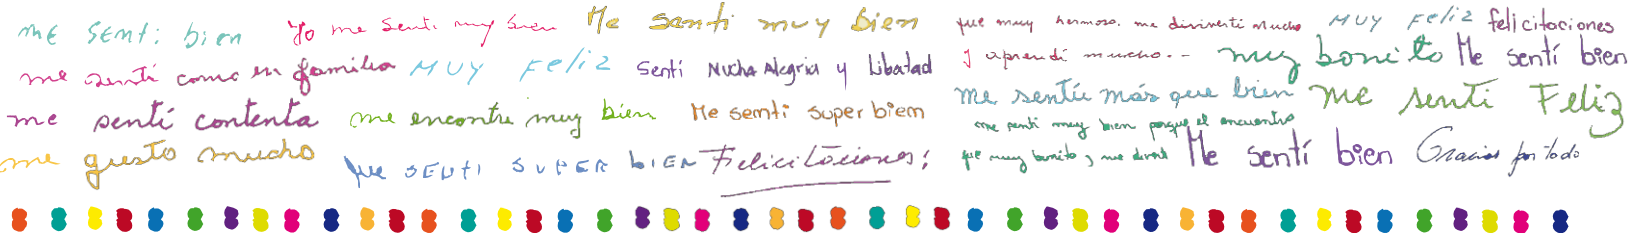 me sentí bien
Yo me senti muy bien
Me senti muy bien
que muy hermoso. me divinerti mucho
y aprendí mucho...
MUY FeliZ
felicitaciones
me sentí como en familia
MUY FeliZ
Sentí Mucha Alegria y Libatad
muy bonito
Me sentí bien
me sentí contenta
me encontré muy bien
Me semti super biem
me sentíu más que bien
me senti Feliz
me gusto mucho
que SENTI SUPER BIEN
Felicitaciones!
me senti muy bien porque el encuentro
fue muy bonito, me diverti
Me sentí bien
Gracias por todo